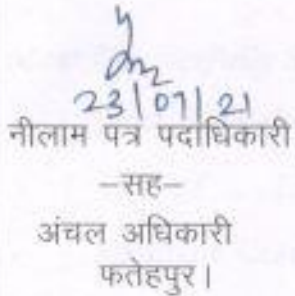 23/07/21
नीलाम पत्र पदाधिकारी
–सह–
अंचल अधिकारी
फतेहपुर।